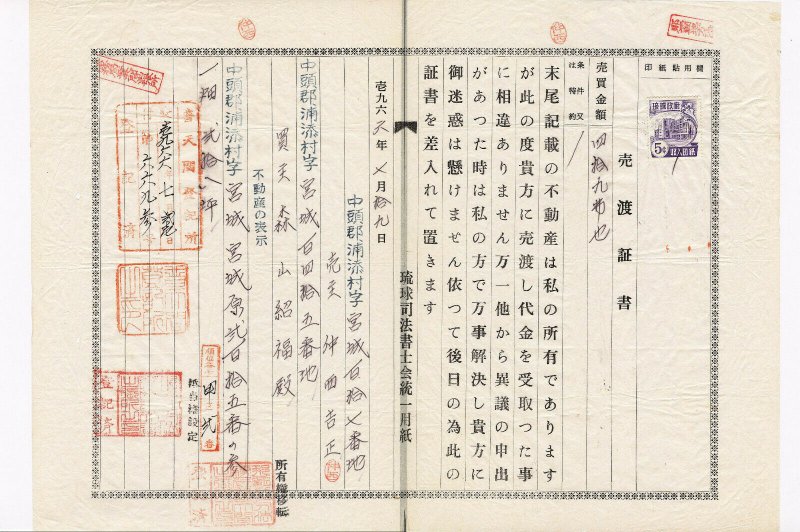 印紙貼用欄
琉球政府
5¢
収入印紙
売渡証書
売買金額
四拾九弗也
条件又
注特約
末尾記載の不動産は私の所有であります
が此の度貴方に売渡し代金を受取つた事
に相違ありません万一他から異議の申出
があつた時は私の方で万事解決し貴方に
御迷惑は懸けません依つて後日の為此の
証書を差入れて置きます
琉球司法書士会統一用紙
壱九六 年 七月拾九日
中頭郡浦添村字宮城百拾七番地
売主 仲西吉正
中頭郡浦添村字宮城百四拾五番地
買主 森山紹福殿
不動産の表示
中頭郡浦添村字宮城 宮城原弐百拾五番の参
一畑 弐拾八坪
所有権移転
抵当権設定
登記済